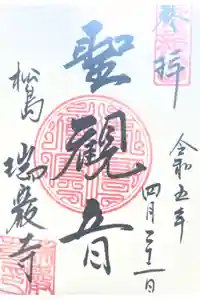 奉拝
令和五年
四月二十一日
聖観音
松島
瑞巌寺